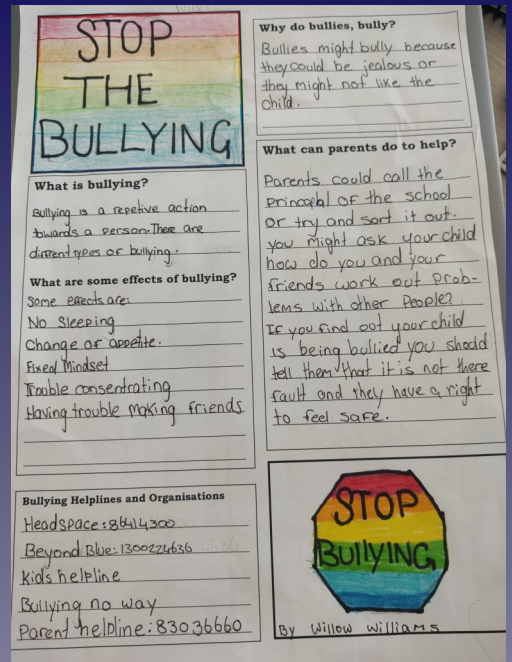 STOP
THE
BULLYING
What is bullying?
Bullying is a repetive action
towards a person. There are
different types of bullying.
What are some effects of bullying?
Some effects are:
No Sleeping
Change of appetite.
Fixed Mindset
Trouble consentrating
Having trouble making friends
Bullying Helplines and Organisations
Headspace: 86414300
Beyond Blue: 1300224636
Kids helpline
Bullying no way
Parent helpline: 83036660
Why do bullies, bully?
Bullies might bully because
they could be jealous or
they might not like the
child.
What can parents do to help?
Parents could call the
of the school
or try and sort it out.
you might ask your child
how do you and your
friends work out prob-
lems with other People?
If you find oot your child
is being bullied you should
tell them that it is not there
fault and they have a right
to feel safe.
STOP
BUllYING
By Willow Williams